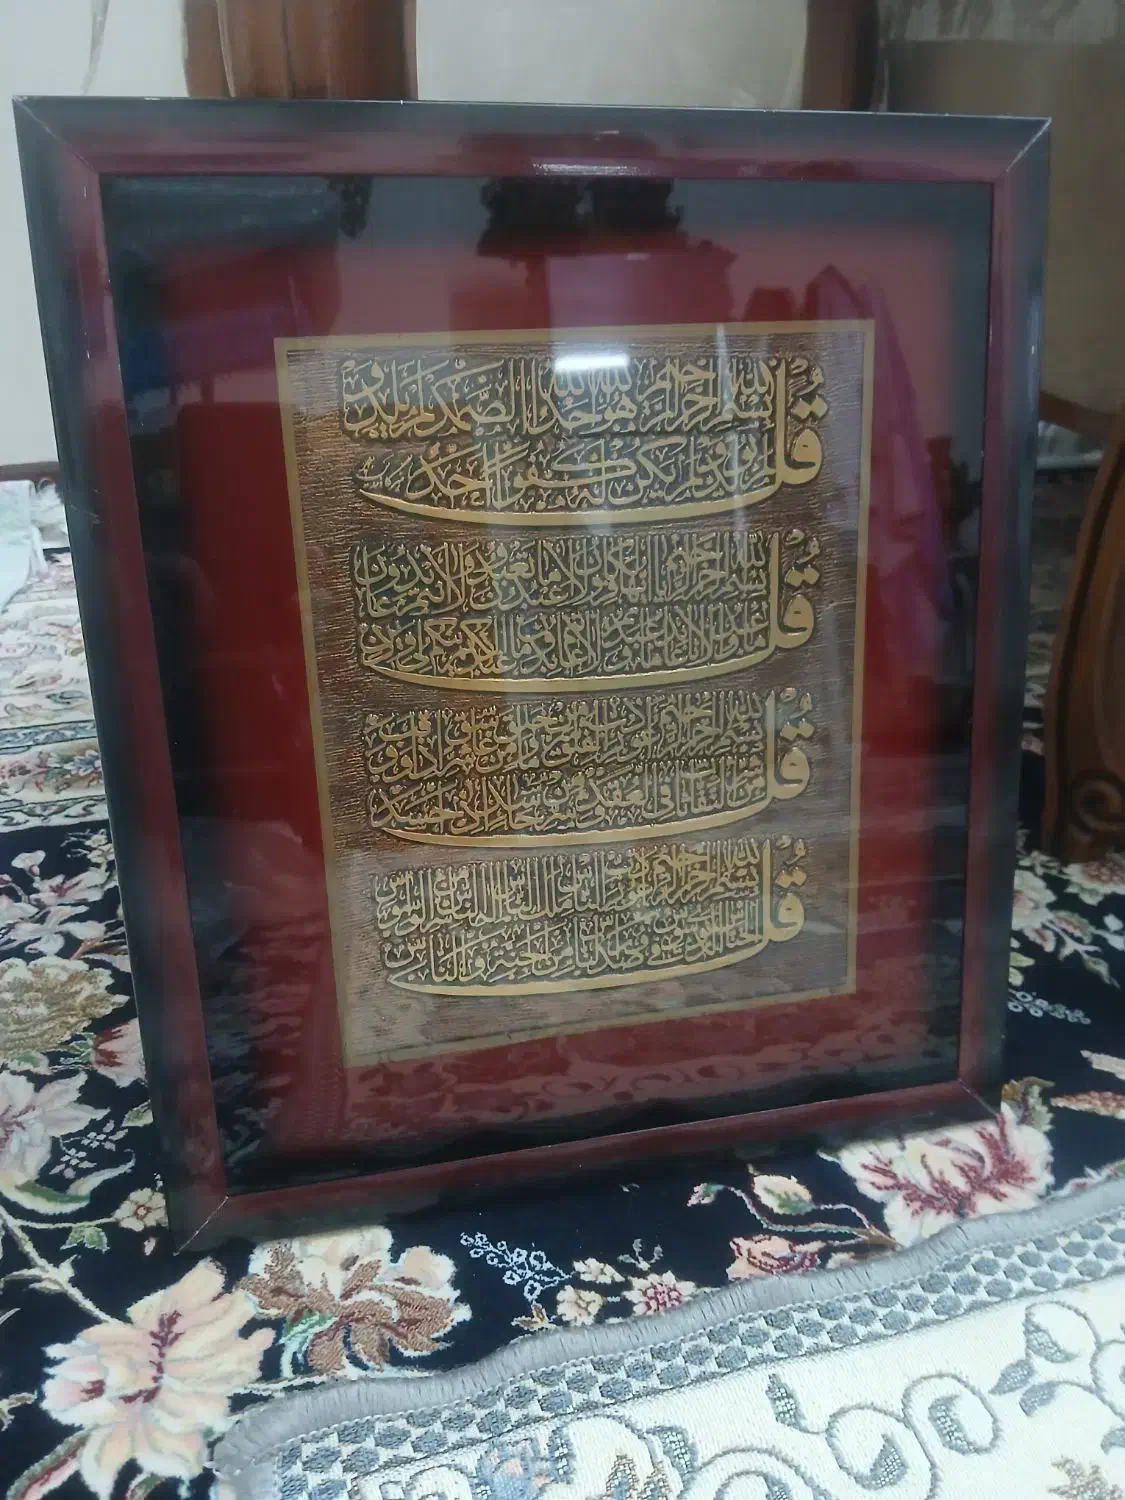 قُل
بسم الله الرحمن الرحيم هو الله احد الله الصمد لم يلد و
لم يولد ولم يكن له كفوا احد
قُل
بسم الله الرحمن الرحيم يا ايها الكافرون لا اعبد ما تعبدون ولا انتم عابدون
ما اعبد ولا انا عابد ما عبدتم ولا انتم عابدون ما اعبد لكم دينكم ولي دين
قُل
بسم الله الرحمن الرحيم اعوذ برب الفلق من شر ما خلق ومن شر غاسق اذا وقب
ومن شر النفاثات في العقد ومن شر حاسد اذا حسد
قُل
بسم الله الرحمن الرحيم اعوذ برب الناس ملك الناس اله الناس من شر الوسواس
الخناس الذي يوسوس في صدور الناس من الجنة والناس